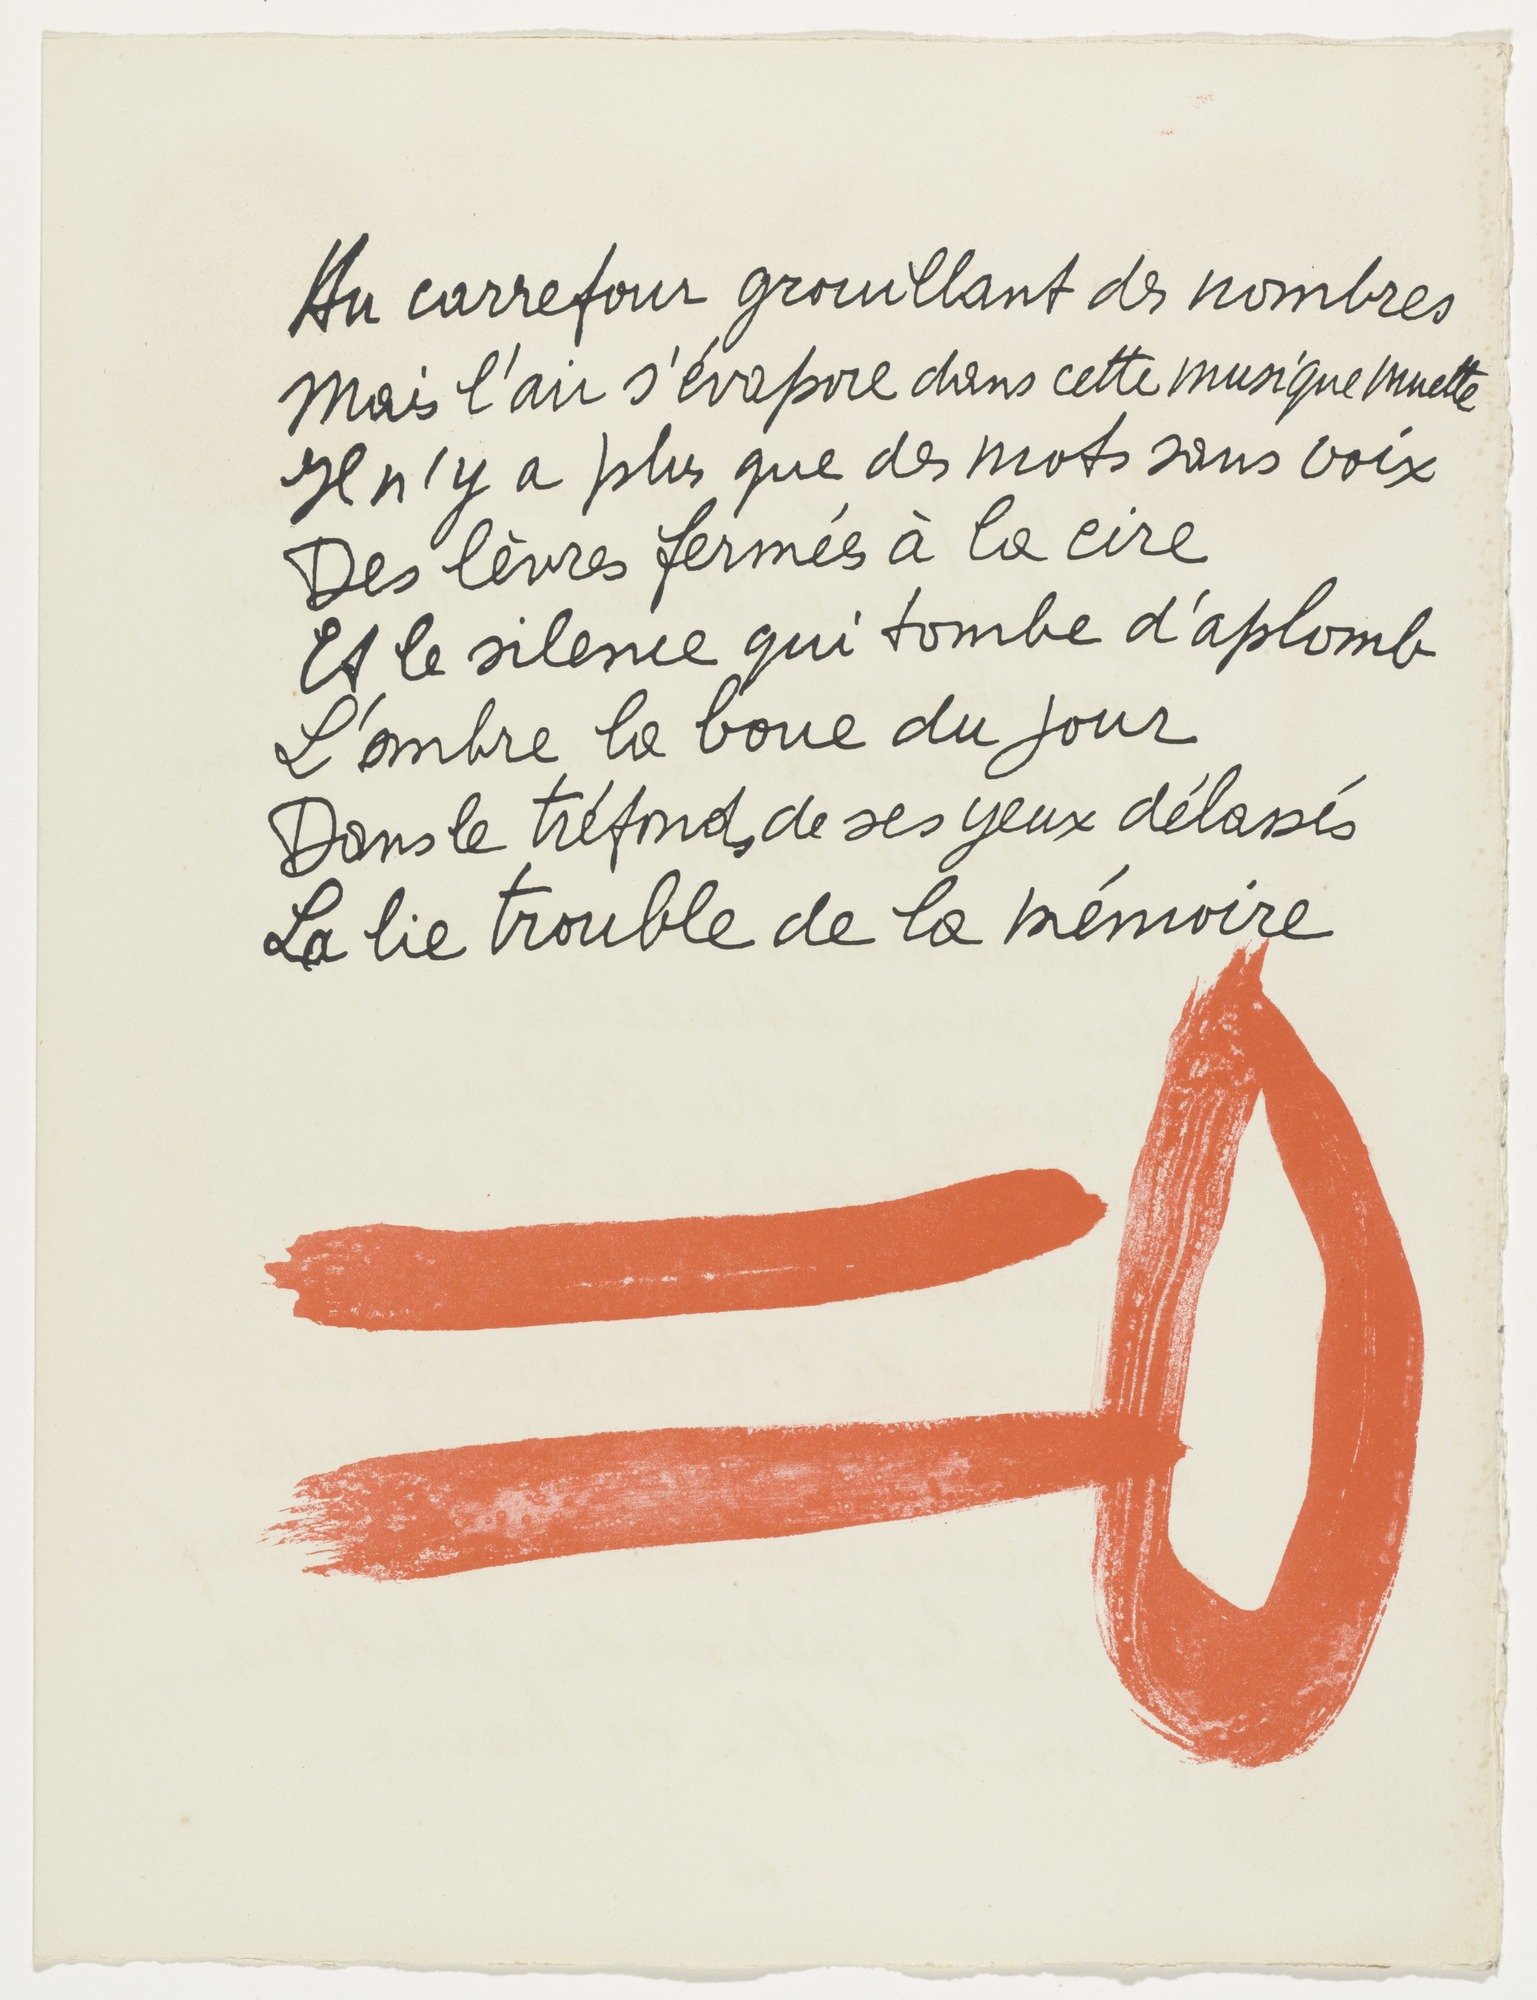 Au carrefour grouillant des nombres
Mais l'air s'évapore dans cette musique muette
Il n'y a plus que des mots sans voix
Des lèvres fermées à la cire
Et le silence qui tombe d'aplomb
L'ombre la boue du jour
Dans le tréfonds de ses yeux délassés
La lie trouble de la mémoire